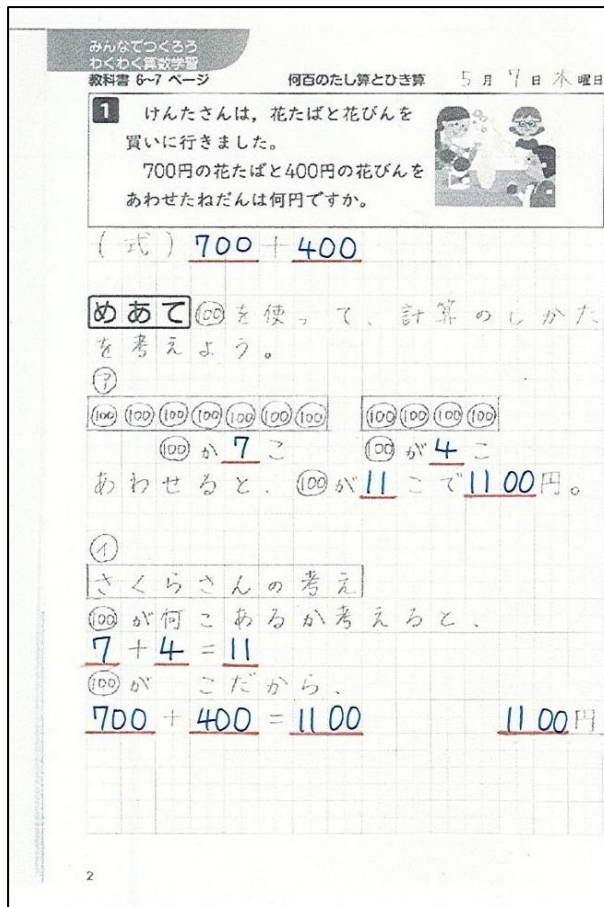 みんなでつくろう
わくわく算数学習
教科書 6~7 ページ 何百のたし算とひき算 5月7日木曜日
1 けんたさんは，花たばと花びんを
買いに行きました。
700円の花たばと400円の花びんを
あわせたねだんは何円ですか。
(式) 700 + 400
めあて 100を使って、計算のしかた
を考えよう。
ア
100 100 100 100 100 100 100 100 100 100 100
100が7こ 100が4こ
あわせると、100が11こで1100円。
イ
さくらさんの考え
100が何こあるか考えると、
7 + 4 = 11
100が こだから、
700 + 400 = 1100 1100円
2